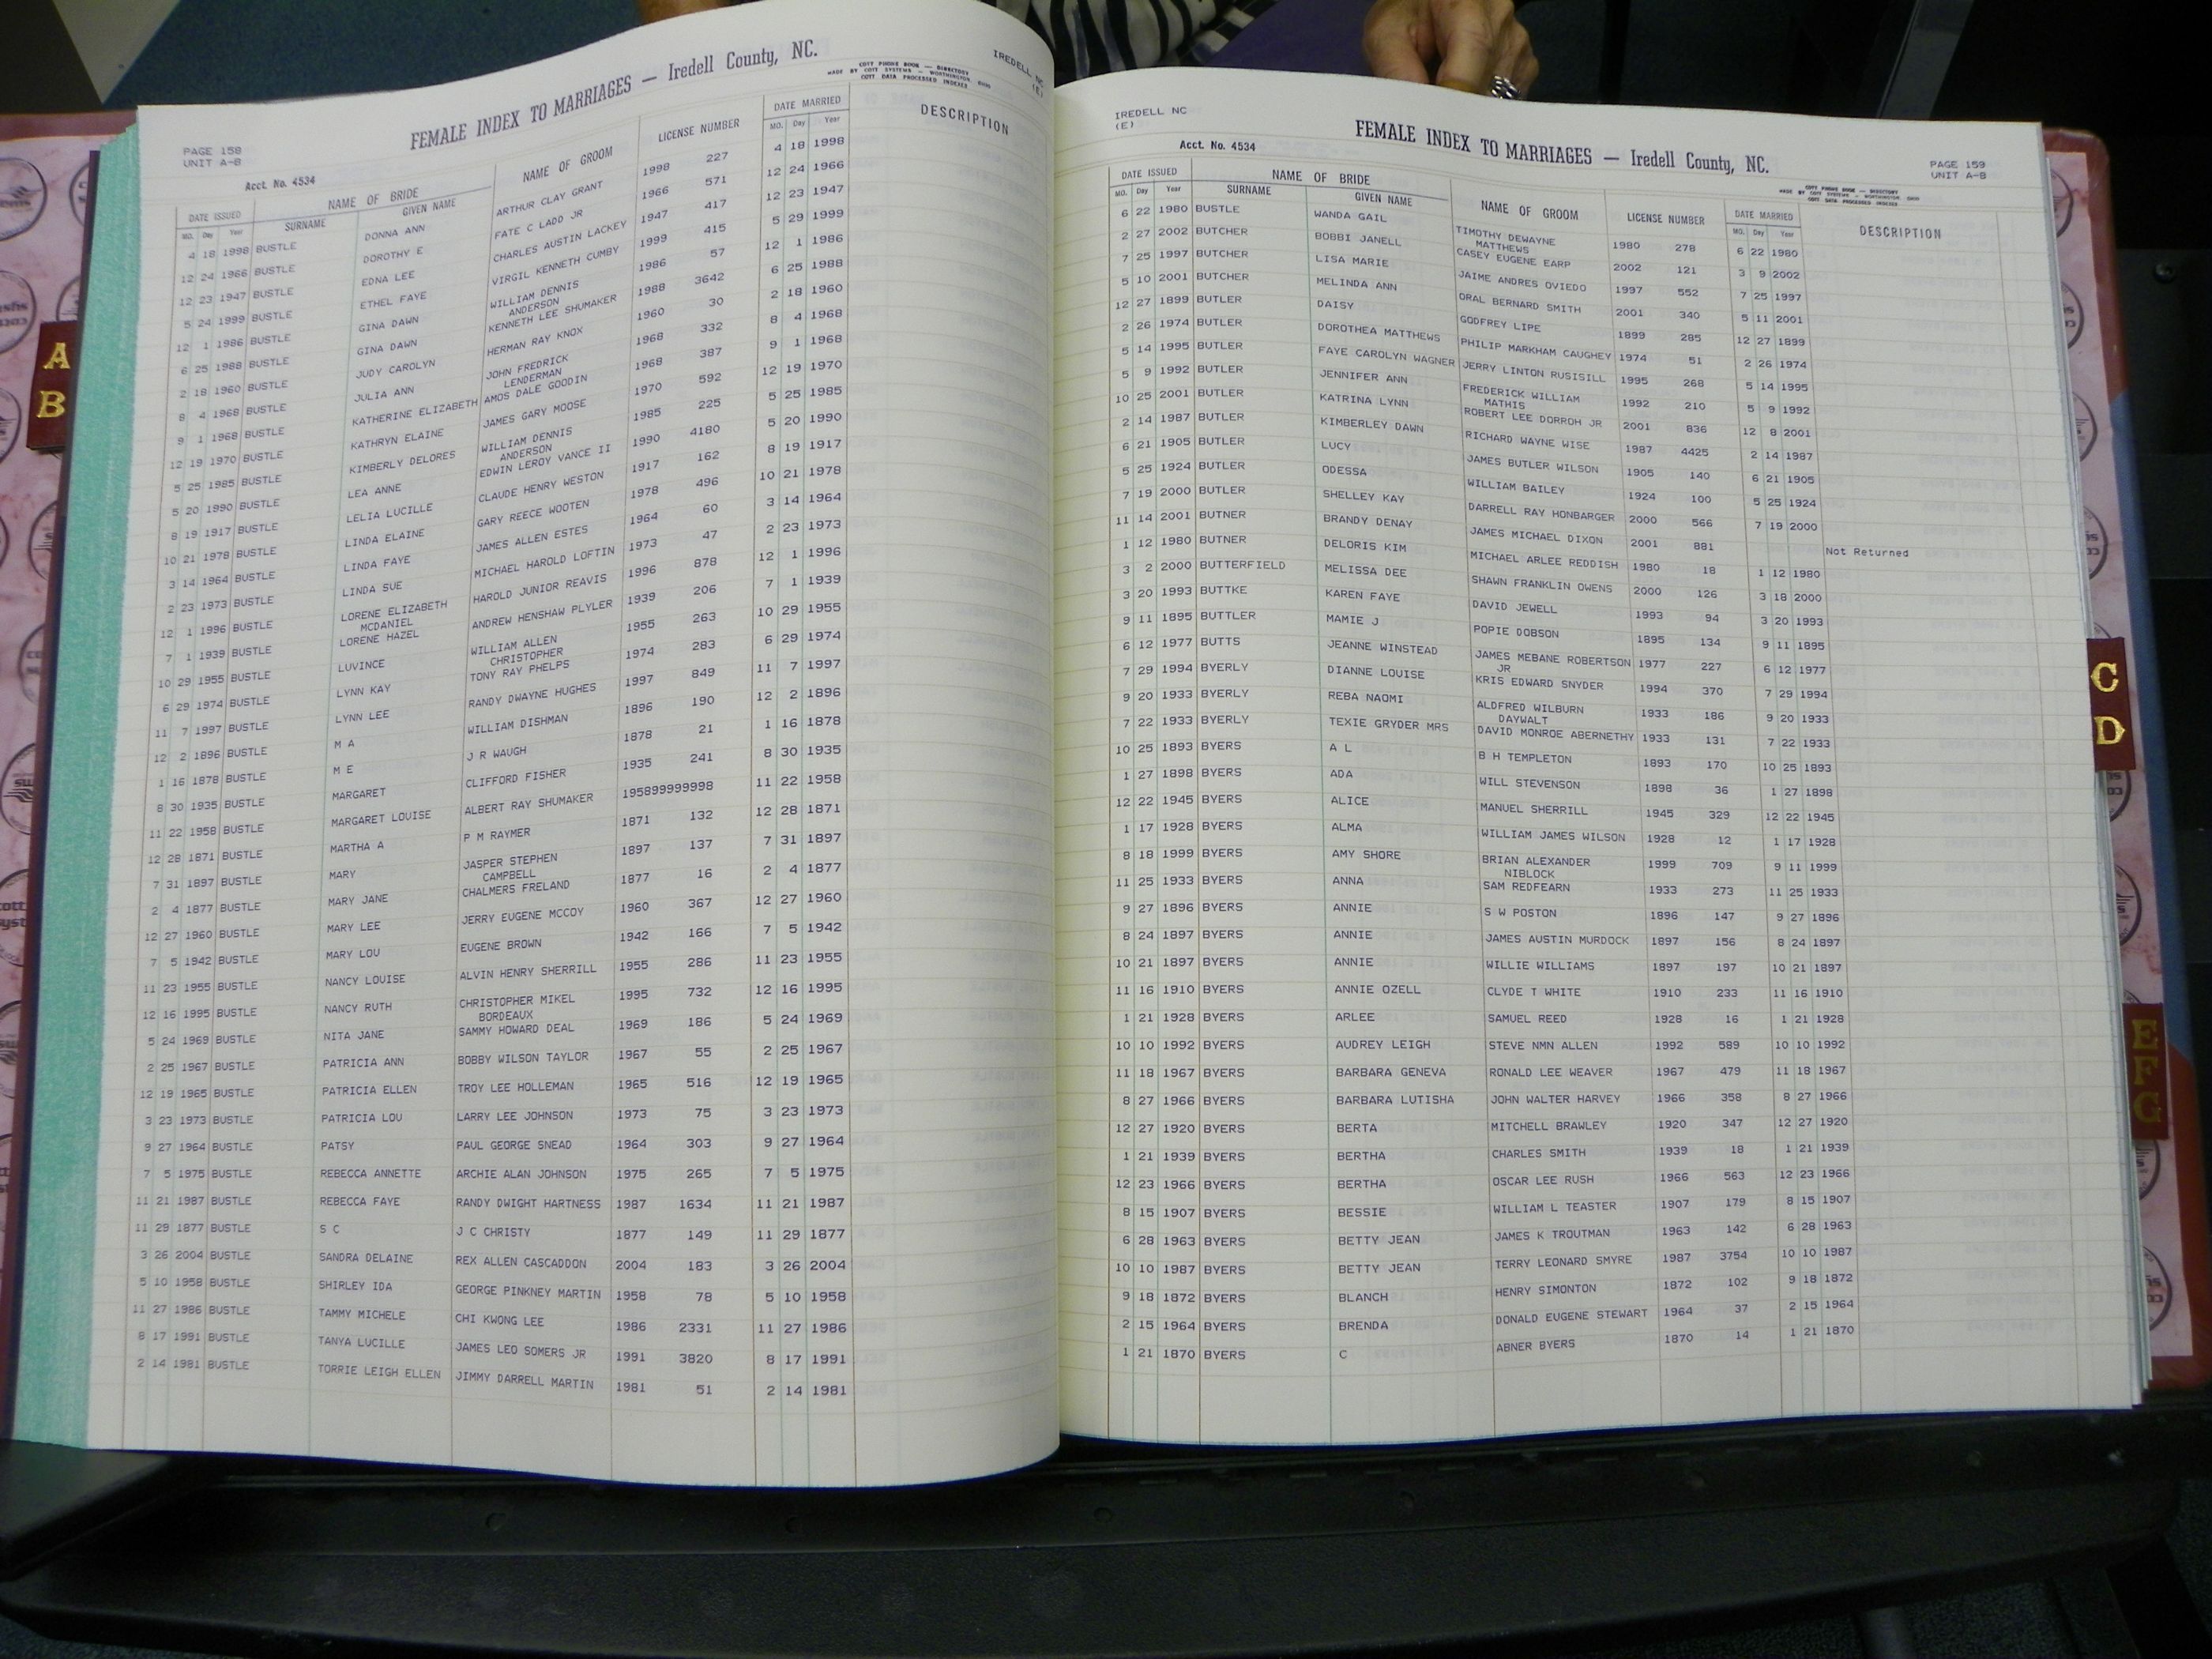 FEMALE INDEX TO MARRIAGES — Iredell County, NC.
COTT PHONE BOOK — DIRECTORY
MADE BY COTT SYSTEMS — WORTHINGTON, OHIO
COTT DATA PROCESSED INDEXES
IREDELL NC
(E)
PAGE 158
UNIT A-B
Acct. No. 4534
DATE ISSUED NAME OF BRIDE NAME OF GROOM LICENSE NUMBER DATE MARRIED DESCRIPTION
MO. Day Year SURNAME GIVEN NAME MO. Day Year
4 18 1998 BUSTLE DONNA ANN ARTHUR CLAY GRANT 1998 227 4 18 1998
12 24 1966 BUSTLE DOROTHY E FATE C LADD JR 1966 571 12 24 1966
12 23 1947 BUSTLE EDNA LEE CHARLES AUSTIN LACKEY 1947 417 12 23 1947
5 24 1999 BUSTLE ETHEL FAYE VIRGIL KENNETH CUMBY 1999 415 5 29 1999
12 1 1986 BUSTLE GINA DAWN WILLIAM DENNIS 1986 57 12 1 1986
ANDERSON
6 25 1988 BUSTLE GINA DAWN KENNETH LEE SHUMAKER 1988 3642 6 25 1988
2 18 1960 BUSTLE JUDY CAROLYN HERMAN RAY KNOX 1960 30 2 18 1960
8 4 1968 BUSTLE JULIA ANN JOHN FREDRICK 1968 332 8 4 1968
LENDERMAN
9 1 1968 BUSTLE KATHERINE ELIZABETH AMOS DALE GOODIN 1968 387 9 1 1968
12 19 1970 BUSTLE KATHRYN ELAINE JAMES GARY MOOSE 1970 592 12 19 1970
5 25 1985 BUSTLE KIMBERLY DELORES WILLIAM DENNIS 1985 225 5 25 1985
ANDERSON
5 20 1990 BUSTLE LEA ANNE EDWIN LEROY VANCE II 1990 4180 5 20 1990
8 19 1917 BUSTLE LELIA LUCILLE CLAUDE HENRY WESTON 1917 162 8 19 1917
10 21 1978 BUSTLE LINDA ELAINE GARY REECE WOOTEN 1978 496 10 21 1978
3 14 1964 BUSTLE LINDA FAYE JAMES ALLEN ESTES 1964 60 3 14 1964
2 23 1973 BUSTLE LINDA SUE MICHAEL HAROLD LOFTIN 1973 47 2 23 1973
12 1 1996 BUSTLE LORENE ELIZABETH HAROLD JUNIOR REAVIS 1996 878 12 1 1996
MCDANIEL
7 1 1939 BUSTLE LORENE HAZEL ANDREW HENSHAW PLYLER 1939 206 7 1 1939
10 29 1955 BUSTLE LUVINCE WILLIAM ALLEN 1955 263 10 29 1955
CHRISTOPHER
6 29 1974 BUSTLE LYNN KAY TONY RAY PHELPS 1974 283 6 29 1974
11 7 1997 BUSTLE LYNN LEE RANDY DWAYNE HUGHES 1997 849 11 7 1997
12 2 1896 BUSTLE M A WILLIAM DISHMAN 1896 190 12 2 1896
1 16 1878 BUSTLE M E J R WAUGH 1878 21 1 16 1878
8 30 1935 BUSTLE MARGARET CLIFFORD FISHER 1935 241 8 30 1935
11 22 1958 BUSTLE MARGARET LOUISE ALBERT RAY SHUMAKER 195899999998 11 22 1958
12 28 1871 BUSTLE MARTHA A P M RAYMER 1871 132 12 28 1871
7 31 1897 BUSTLE MARY JASPER STEPHEN 1897 137 7 31 1897
CAMPBELL
2 4 1877 BUSTLE MARY JANE CHALMERS FRELAND 1877 16 2 4 1877
12 27 1960 BUSTLE MARY LEE JERRY EUGENE MCCOY 1960 367 12 27 1960
7 5 1942 BUSTLE MARY LOU EUGENE BROWN 1942 166 7 5 1942
11 23 1955 BUSTLE NANCY LOUISE ALVIN HENRY SHERRILL 1955 286 11 23 1955
12 16 1995 BUSTLE NANCY RUTH CHRISTOPHER MIKEL 1995 732 12 16 1995
BORDEAUX
5 24 1969 BUSTLE NITA JANE SAMMY HOWARD DEAL 1969 186 5 24 1969
2 25 1967 BUSTLE PATRICIA ANN BOBBY WILSON TAYLOR 1967 55 2 25 1967
12 19 1965 BUSTLE PATRICIA ELLEN TROY LEE HOLLEMAN 1965 516 12 19 1965
3 23 1973 BUSTLE PATRICIA LOU LARRY LEE JOHNSON 1973 75 3 23 1973
9 27 1964 BUSTLE PATSY PAUL GEORGE SNEAD 1964 303 9 27 1964
7 5 1975 BUSTLE REBECCA ANNETTE ARCHIE ALAN JOHNSON 1975 265 7 5 1975
11 21 1987 BUSTLE REBECCA FAYE RANDY DWIGHT HARTNESS 1987 1634 11 21 1987
11 29 1877 BUSTLE S C J C CHRISTY 1877 149 11 29 1877
3 26 2004 BUSTLE SANDRA DELAINE REX ALLEN CASCADDON 2004 183 3 26 2004
5 10 1958 BUSTLE SHIRLEY IDA GEORGE PINKNEY MARTIN 1958 78 5 10 1958
11 27 1986 BUSTLE TAMMY MICHELE CHI KWONG LEE 1986 2331 11 27 1986
8 17 1991 BUSTLE TANYA LUCILLE JAMES LEO SOMERS JR 1991 3820 8 17 1991
2 14 1981 BUSTLE TORRIE LEIGH ELLEN JIMMY DARRELL MARTIN 1981 51 2 14 1981
IREDELL NC
(E)
FEMALE INDEX TO MARRIAGES — Iredell County, NC.
PAGE 159
UNIT A-B
Acct. No. 4534
COTT PHONE BOOK — DIRECTORY
MADE BY COTT SYSTEMS — WORTHINGTON, OHIO
COTT DATA PROCESSED INDEXES
DATE ISSUED NAME OF BRIDE NAME OF GROOM LICENSE NUMBER DATE MARRIED DESCRIPTION
MO. Day Year SURNAME GIVEN NAME MO. Day Year
6 22 1980 BUSTLE WANDA GAIL TIMOTHY DEWAYNE 1980 278 6 22 1980
MATTHEWS
2 27 2002 BUTCHER BOBBI JANELL CASEY EUGENE EARP 2002 121 3 9 2002
7 25 1997 BUTCHER LISA MARIE JAIME ANDRES OVIEDO 1997 552 7 25 1997
5 10 2001 BUTCHER MELINDA ANN ORAL BERNARD SMITH 2001 340 5 11 2001
12 27 1899 BUTLER DAISY GODFREY LIPE 1899 285 12 27 1899
2 26 1974 BUTLER DOROTHEA MATTHEWS PHILIP MARKHAM CAUGHEY 1974 51 2 26 1974
5 14 1995 BUTLER FAYE CAROLYN WAGNER JERRY LINTON RUSISILL 1995 268 5 14 1995
5 9 1992 BUTLER JENNIFER ANN FREDERICK WILLIAM 1992 210 5 9 1992
MATHIS
10 25 2001 BUTLER KATRINA LYNN ROBERT LEE DORROH JR 2001 836 12 8 2001
2 14 1987 BUTLER KIMBERLEY DAWN RICHARD WAYNE WISE 1987 4425 2 14 1987
6 21 1905 BUTLER LUCY JAMES BUTLER WILSON 1905 140 6 21 1905
5 25 1924 BUTLER ODESSA WILLIAM BAILEY 1924 100 5 25 1924
7 19 2000 BUTLER SHELLEY KAY DARRELL RAY HONBARGER 2000 566 7 19 2000
11 14 2001 BUTNER BRANDY DENAY JAMES MICHAEL DIXON 2001 881 Not Returned
1 12 1980 BUTNER DELORIS KIM MICHAEL ARLEE REDDISH 1980 18 1 12 1980
3 2 2000 BUTTERFIELD MELISSA DEE SHAWN FRANKLIN OWENS 2000 126 3 18 2000
3 20 1993 BUTTKE KAREN FAYE DAVID JEWELL 1993 94 3 20 1993
9 11 1895 BUTTLER MAMIE J POPIE DOBSON 1895 134 9 11 1895
6 12 1977 BUTTS JEANNE WINSTEAD JAMES MEBANE ROBERTSON 1977 227 6 12 1977
JR
7 29 1994 BYERLY DIANNE LOUISE KRIS EDWARD SNYDER 1994 370 7 29 1994
9 20 1933 BYERLY REBA NAOMI ALDFRED WILBURN 1933 186 9 20 1933
DAYWALT
7 22 1933 BYERLY TEXIE GRYDER MRS DAVID MONROE ABERNETHY 1933 131 7 22 1933
10 25 1893 BYERS A L B H TEMPLETON 1893 170 10 25 1893
1 27 1898 BYERS ADA WILL STEVENSON 1898 36 1 27 1898
12 22 1945 BYERS ALICE MANUEL SHERRILL 1945 329 12 22 1945
1 17 1928 BYERS ALMA WILLIAM JAMES WILSON 1928 12 1 17 1928
8 18 1999 BYERS AMY SHORE BRIAN ALEXANDER 1999 709 9 11 1999
NIBLOCK
11 25 1933 BYERS ANNA SAM REDFEARN 1933 273 11 25 1933
9 27 1896 BYERS ANNIE S W POSTON 1896 147 9 27 1896
8 24 1897 BYERS ANNIE JAMES AUSTIN MURDOCK 1897 156 8 24 1897
10 21 1897 BYERS ANNIE WILLIE WILLIAMS 1897 197 10 21 1897
11 16 1910 BYERS ANNIE OZELL CLYDE T WHITE 1910 233 11 16 1910
1 21 1928 BYERS ARLEE SAMUEL REED 1928 16 1 21 1928
10 10 1992 BYERS AUDREY LEIGH STEVE NMN ALLEN 1992 589 10 10 1992
11 18 1967 BYERS BARBARA GENEVA RONALD LEE WEAVER 1967 479 11 18 1967
8 27 1966 BYERS BARBARA LUTISHA JOHN WALTER HARVEY 1966 358 8 27 1966
12 27 1920 BYERS BERTA MITCHELL BRAWLEY 1920 347 12 27 1920
1 21 1939 BYERS BERTHA CHARLES SMITH 1939 18 1 21 1939
12 23 1966 BYERS BERTHA OSCAR LEE RUSH 1966 563 12 23 1966
8 15 1907 BYERS BESSIE WILLIAM L TEASTER 1907 179 8 15 1907
6 28 1963 BYERS BETTY JEAN JAMES K TROUTMAN 1963 142 6 28 1963
10 10 1987 BYERS BETTY JEAN TERRY LEONARD SMYRE 1987 3754 10 10 1987
9 18 1872 BYERS BLANCH HENRY SIMONTON 1872 102 9 18 1872
2 15 1964 BYERS BRENDA DONALD EUGENE STEWART 1964 37 2 15 1964
1 21 1870 BYERS C ABNER BYERS 1870 14 1 21 1870
A
B
C
D
E
F
G